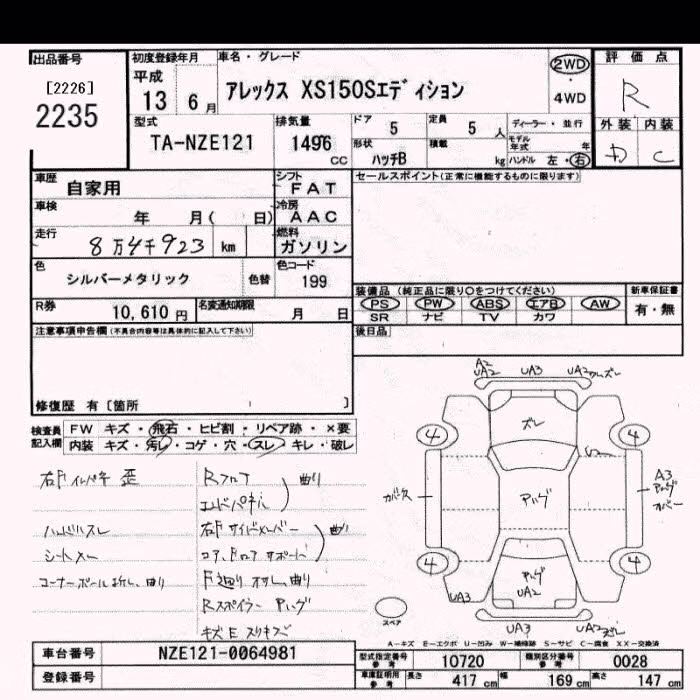 出品番号
[2226]
2235
初度登録年月
平成
13 6月
車名・グレード
アレックス XS150Sエディション
2WD
4WD
評価点
R
型式
TA-NZE121
排気量
1496
cc
ドア
5
定員
5 人
形状
ハッチB
積載
kg
ディーラー・並行
モデル年式 年
ハンドル 左・右
外装 内装
D C
車歴
自家用
シフト
FAT
車検
年 月( 日)
冷房
AAC
走行
8万4千923 km
燃料
ガソリン
色
シルバーメタリック
色替
色コード
199
R券
10,610円
名変通知期限
月 日
セールスポイント(正常に機能するものに限ります)
装備品 (純正品に限り○をつけてください)
新車保証書
PS PW ABS エアB AW
SR ナビ TV カワ
有・無
後日品
注意事項申告欄(不具合内容等は具体的に記入して下さい)
修復歴 有〔箇所 〕
検査員記入欄
FW キズ・飛石・ヒビ割・リペア跡・×要
内装 キズ・汚レ・コゲ・穴・スレ・キレ・破レ
右F インパネ 歪
Rフロア
エンドパネル
曲り
ハンドルスレ
右F サイドメンバー
シート
コア、Fロア サポート
曲り
コーナーポール折れ、曲り
F廻り 押し、曲り
Rスポイラー
キズE スリキズ
A2
UA2
UA3
UA2
ズレ
4
4
A3
4
4
UA2
UA3
UA3
UA2
スペア
A-キズ E-エクボ U-凹み W-補修跡 S-サビ C-腐食 XX-交換済
車台番号
NZE121-0064981
登録番号
型式指定番号
参考
10720
類別区分番号
参考
0028
車庫証明用
参考
長さ 417 cm
幅 169 cm
高さ 147 cm